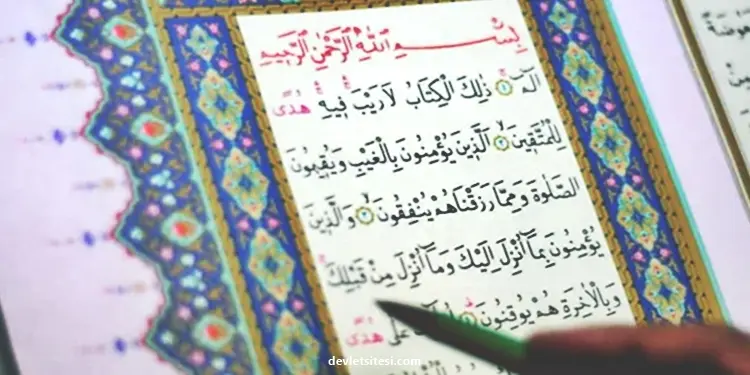 بِسْمِ اللّٰهِ الرَّحْمٰنِ الرَّحٖيمِ
الٓمٓ ﴿١﴾ ذٰلِكَ الْكِتَابُ لَا رَيْبَ فٖيهِ هُدًى
لِلْمُتَّقٖينَ ﴿٢﴾ اَلَّذٖينَ يُؤْمِنُونَ بِالْغَيْبِ وَيُقٖيمُونَ
الصَّلٰوةَ وَمِمَّا رَزَقْنَاهُمْ يُنْفِقُونَ ﴿٣﴾ وَالَّذٖينَ
يُؤْمِنُونَ بِمَٓا اُنْزِلَ اِلَيْكَ وَمَٓا اُنْزِلَ مِنْ قَبْلِكَ
وَبِالْاٰخِرَةِ هُمْ يُوقِنُونَ عَلٰى هُدًى
devletsitesi.com